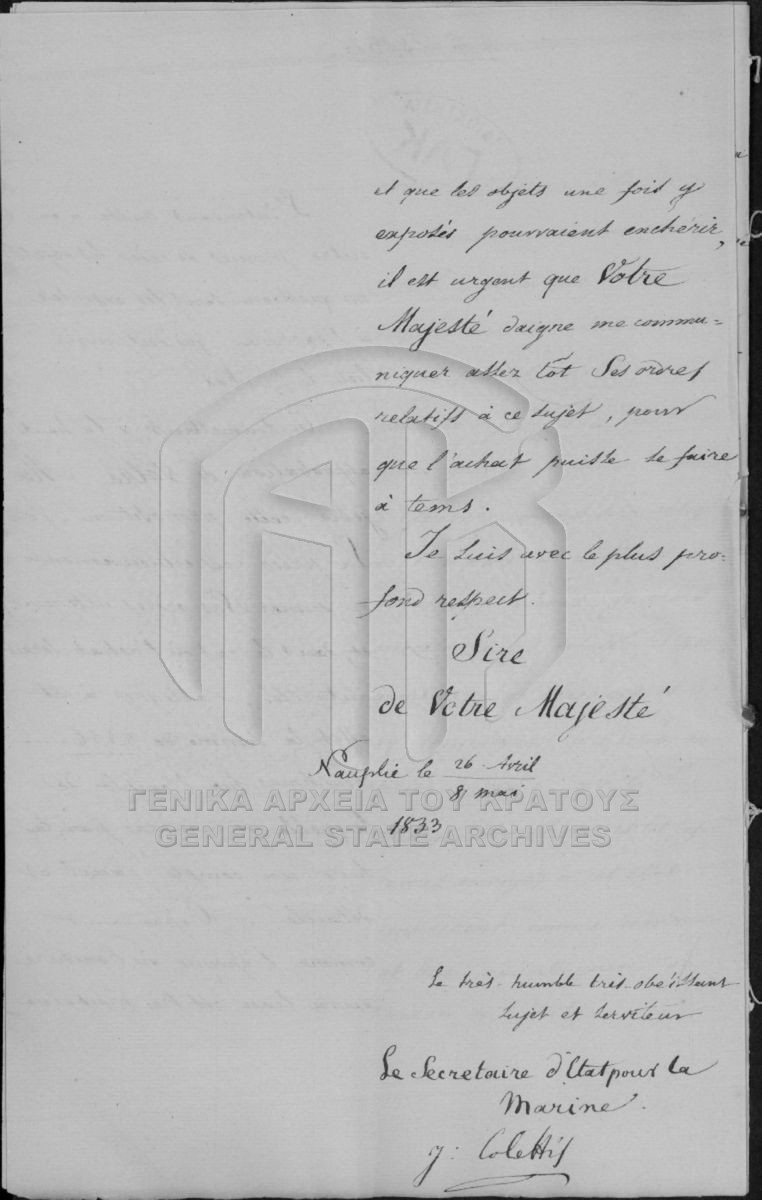 et que les objets une fois y
exposés pourraient enchérir,
il est urgent que Votre
Majesté daigne me commu=
niquer assez tôt Ses ordres
relatifs à ce sujet, pour
que l'achat puisse se faire
à tems.
Je suis avec le plus pro=
fond respect.
Sire
de Votre Majesté
Nauplie le 26 Avril
8 mai
1833
ΓΕΝΙΚΑ ΑΡΧΕΙΑ ΤΟΥ ΚΡΑΤΟΥΣ
GENERAL STATE ARCHIVES
Le très-humble très-obéissant
sujet et serviteur
Le Secretaire d'Etat pour la
Marine.
J: Colettis